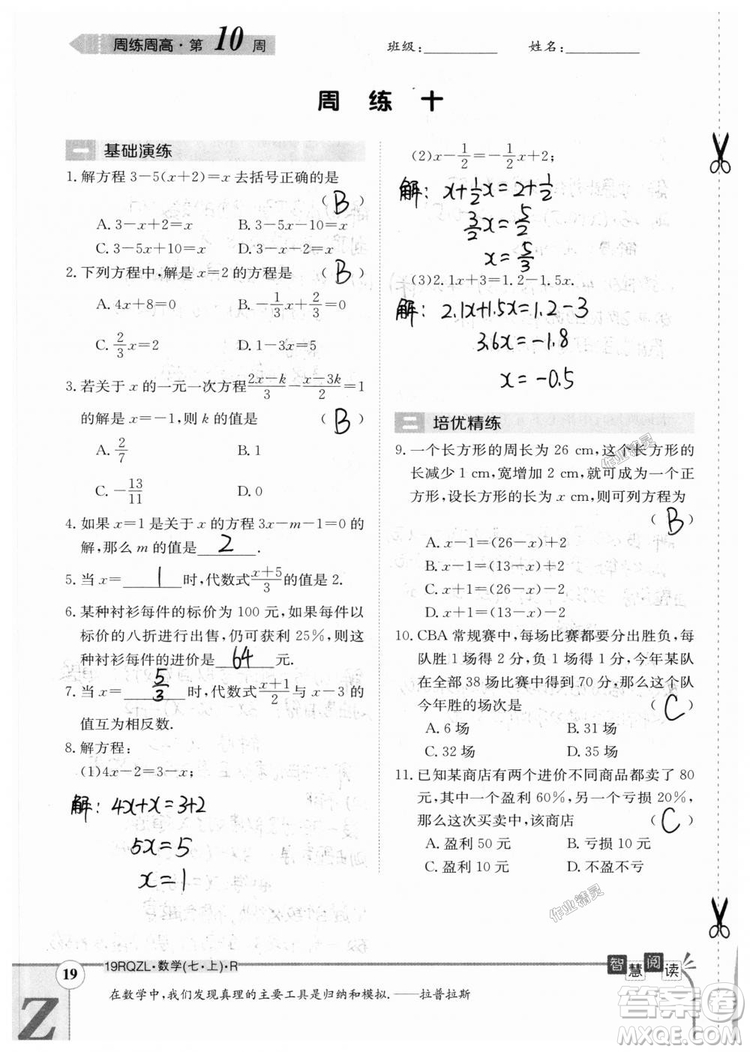 周练周高·第10周
班级:________ 姓名:________
周 练 十
一 基础演练
1. 解方程 3-5(x+2)=x 去括号正确的是
( B )
A. 3-x+2=x B. 3-5x-10=x
C. 3-5x+10=x D. 3-x-2=x
2. 下列方程中,解是 x=2 的方程是 ( B )
A. 4x+8=0 B. -1/3x+2/3=0
C. 2/3x=2 D. 1-3x=5
3. 若关于 x 的一元一次方程 (2x-k)/3-(x-3k)/2=1
的解是 x=-1,则 k 的值是 ( B )
A. 2/7 B. 1
C. -13/11 D. 0
4. 如果 x=1 是关于 x 的方程 3x-m-1=0 的
解,那么 m 的值是 2 .
5. 当 x= 1 时,代数式 (x+5)/3 的值是 2.
6. 某种衬衫每件的标价为 100 元,如果每件以
标价的八折进行出售,仍可获利 25%,则这
种衬衫每件的进价是 64 元.
7. 当 x= 5/3 时,代数式 (x+1)/2 与 x-3 的
值互为相反数.
8. 解方程:
(1)4x-2=3-x;
解: 4x+x=3+2
5x=5
x=1
(2)x-1/2=-1/2x+2;
解: x+1/2x=2+1/2
3/2x=5/2
x=5/3
(3)2.1x+3=1.2-1.5x.
解: 2.1x+1.5x=1.2-3
3.6x=-1.8
x=-0.5
二 培优精练
9. 一个长方形的周长为 26 cm,这个长方形的
长减少 1 cm,宽增加 2 cm,就可成为一个正
方形,设长方形的长为 x cm,可列方程为
( B )
A. x-1=(26-x)+2
B. x-1=(13-x)+2
C. x+1=(26-x)-2
D. x+1=(13-x)-2
10. CBA 常规赛中,每场比赛都要分出胜负,每
队胜 1 场得 2 分,负一场得 1 分,今年某队
在全部 38 场比赛中得到 70 分,那么这个队
今年胜的场次是 ( C )
A. 6 场 B. 31 场
C. 32 场 D. 35 场
11. 已知某商店有两个进价不同商品都卖了 80
元,其中一个盈利 60%,另一个亏损 20%,
那么这次买卖中,该商店 ( C )
A. 盈利 50 元 B. 亏损 10 元
C. 盈利 10 元 D. 不盈不亏
作业精灵
作业精灵
19
19RQZL·数学(七·上)·R
在数学中,我们发现真理的主要工具是归纳和模拟. ——拉普拉斯
智慧阅读
Z
答案圈